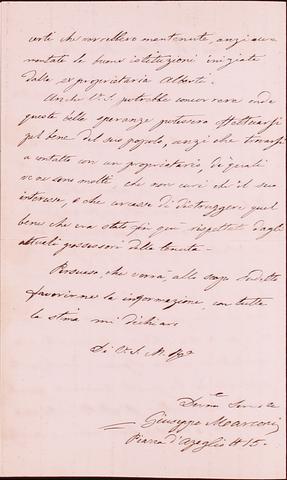 certi che vorrebbero mantenute, anzi au-
mentate le buone istituzioni iniziate
dalla exproprietaria Alberti.
Anche V.S. potrebbe concorrere onde
queste belle speranze potessero effettuarsi
pel bene del suo popolo, anzi che trovarsi
a contatto con un proprietario, di quali
ve ne sono molti, che non curi che il suo
interesse, e che cercasse di distruggere quel
bene che era stato fin qui rispettato dagli
attuali possessori della tenuta.
Persuaso, che vorrà, allo scopo suddetto
favorirmi le informazione, con tutta
la stima mi dichiaro
Di V. S. M.
Giuseppe Marconi
Piazza d'Azeglio N 15.